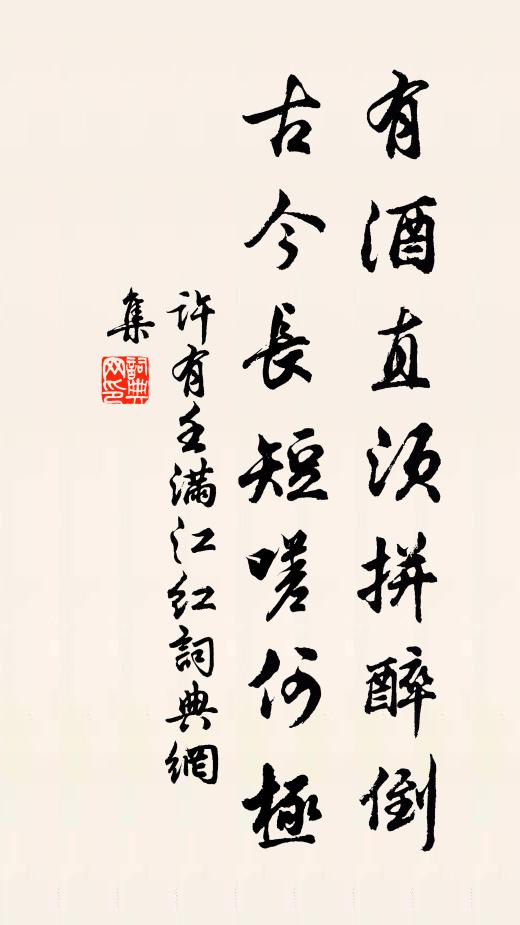 有酒直須拼醉倒
古今長短嗟何極
許有壬滿江紅詞典網
集
詞典网印